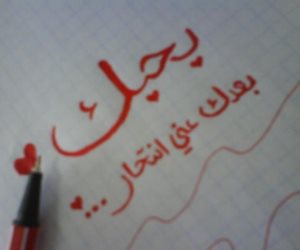 بحبك
بعدك عني انتحار...